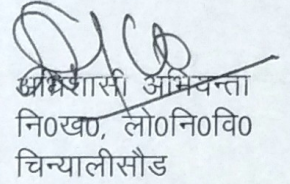 अधिशासी अभियन्ता
नि0ख0, लो0नि0वि0
चिन्यालीसौड